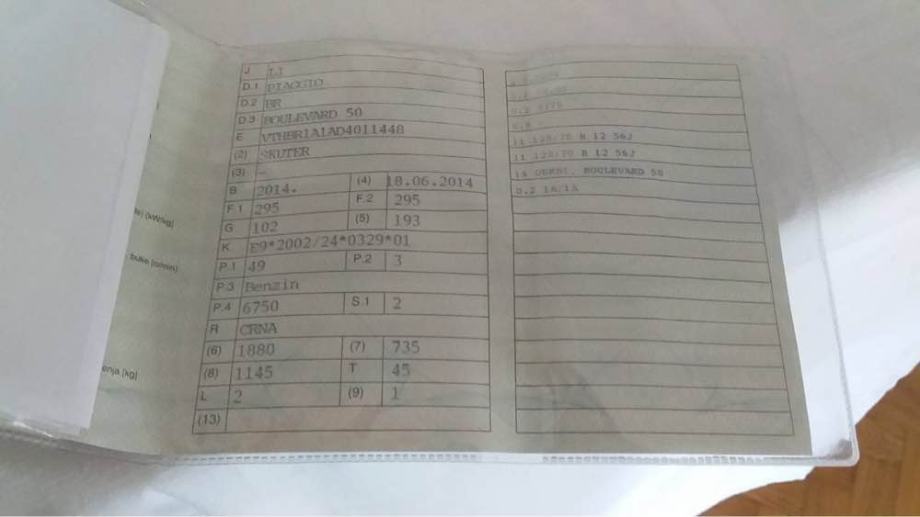 te) (kW/kg)
buke (o/min)
enja [kg]
J L1
D.1 PIAGGIO
D.2 BR
D.3 BOULEVARD 50
E VTHBR1A1AD4011448
(2) SKUTER
(3) -
B 2014. (4) 18.06.2014
F.1 295 F.2 295
G 102 (5) 193
K E9*2002/24*0329*01
P.1 49 P.2 3
P.3 Benzin
P.4 6750 S.1 2
R CRNA
(6) 1880 (7) 735
(8) 1145 T 45
L 2 (9) 1
(13)
11 120/70 R 12 56J
11 120/70 R 12 56J
14 DERBI, BOULEVARD 50
0.2 1A/1A